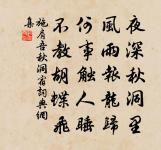 夜深秋洞裏
風雨報龍歸
何事觸人睡
不教胡蝶飛
施肩吾秋洞宿詞典網
集